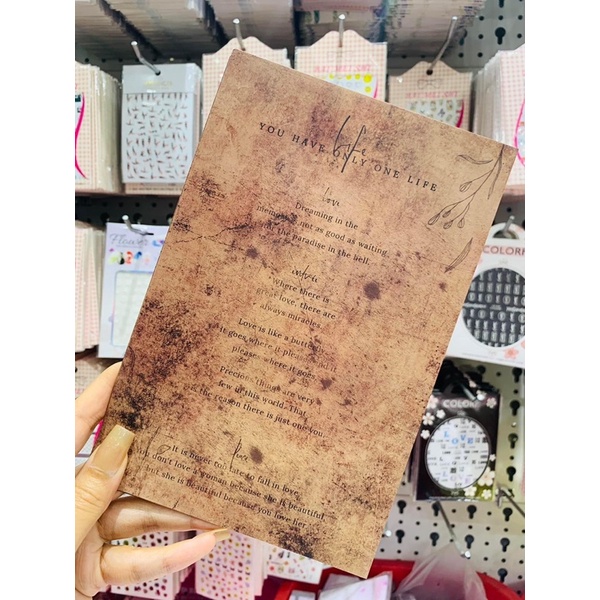 life
YOU HAVE ONLY ONE LIFE
Dreaming in the
memories, not as good as waiting
the paradise in the hell.
Where there is
great love, there are
always miracles.
Love is like a butterfly
It goes where it pleases and it
pleases where it goes
Precious things are very
few in this world. That
is the reason there is just one you
It is never too late to fall in love
You don't love a woman because she is beautiful,
but she is beautiful because you love her.
Flower
COLORF
COLORF